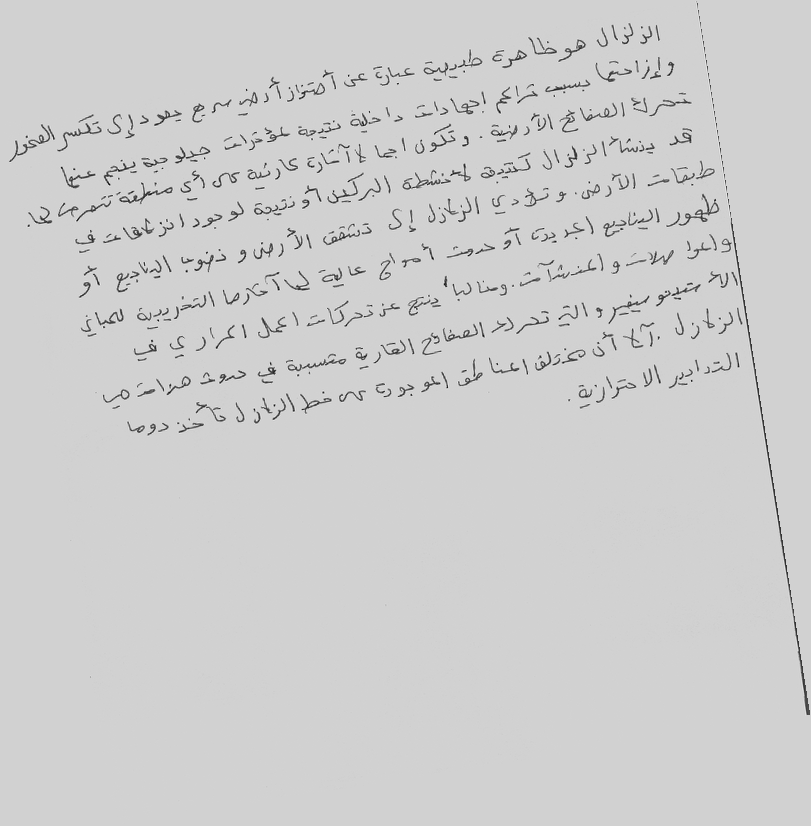 الزلزال هو ظاهرة طبيعية عبارة عن أهتزاز أرضي سريع يعود إلى تكسر الصخور
وإزاحتها بسبب تراكم اجهادات داخلية نتيجة لمؤثرات جيلوجية ينجم عنها
تحرك الصفائح الأرضية. وتكون اجمالا آثارة كارثية على أي منطقة تتعرض لها.
قد ينشأ الزلزال كنتيجة لأنشطة البركين أو نتيجة لوجود انزلاقات في
طبقات الأرض. وتؤدي الزلازل إلى تشقق الأرض و نضوب الينابيع أو
ظهور الينابيع الجديدة أو حدوث أمواج عالية لها آثارها التخريبية للمباني
والمواصلات والمنشآت. وغالباً ينتج عن تحركات الحمل الحراري في
الأستينوسفير والتي تحرك الصفائح القارية متسببة في حدوث هزات هي
الزلازل. آلا أن مختلف المناطق الموجودة على خط الزلازل تأخذ دوما
التدابير الاحترازية.